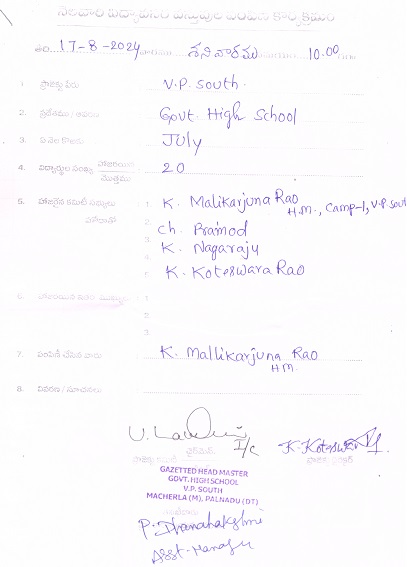 నెలవారి విద్యావసర వస్తువుల పంపిణీ కార్యక్రమం
తేది 17-8-2024 వారము శనివారము సమయం 10.00 గం
1 ప్రాజెక్టు పేరు V.P. South.
2. ప్రదేశము / ఊరు Govt. High School
3. ఏ నెల కొరకు July
4. విద్యార్థుల సంఖ్య హాజరయిన / మొత్తము 20
5. హాజరైన కమిటీ సభ్యులు 1. K. Malikarjuna Rao
H.M., Camp-1, V.P. Sout
2. Ch. Pramod
3.
4. K. Nagaraju
5. K. Koteswara Rao
6. 1.
2.
3.
7. పంపిణీ చేసిన వారు K. Mallikarjuna Rao
HM.
8. వివరణ / సూచనలు
I/C K. Koteswar
GAZETTED HEAD MASTER
GOVT. HIGH SCHOOL
V.P. SOUTH
MACHERLA (M), PALNADU (DT)
P. Dhanalakshmi
Asst. Manager